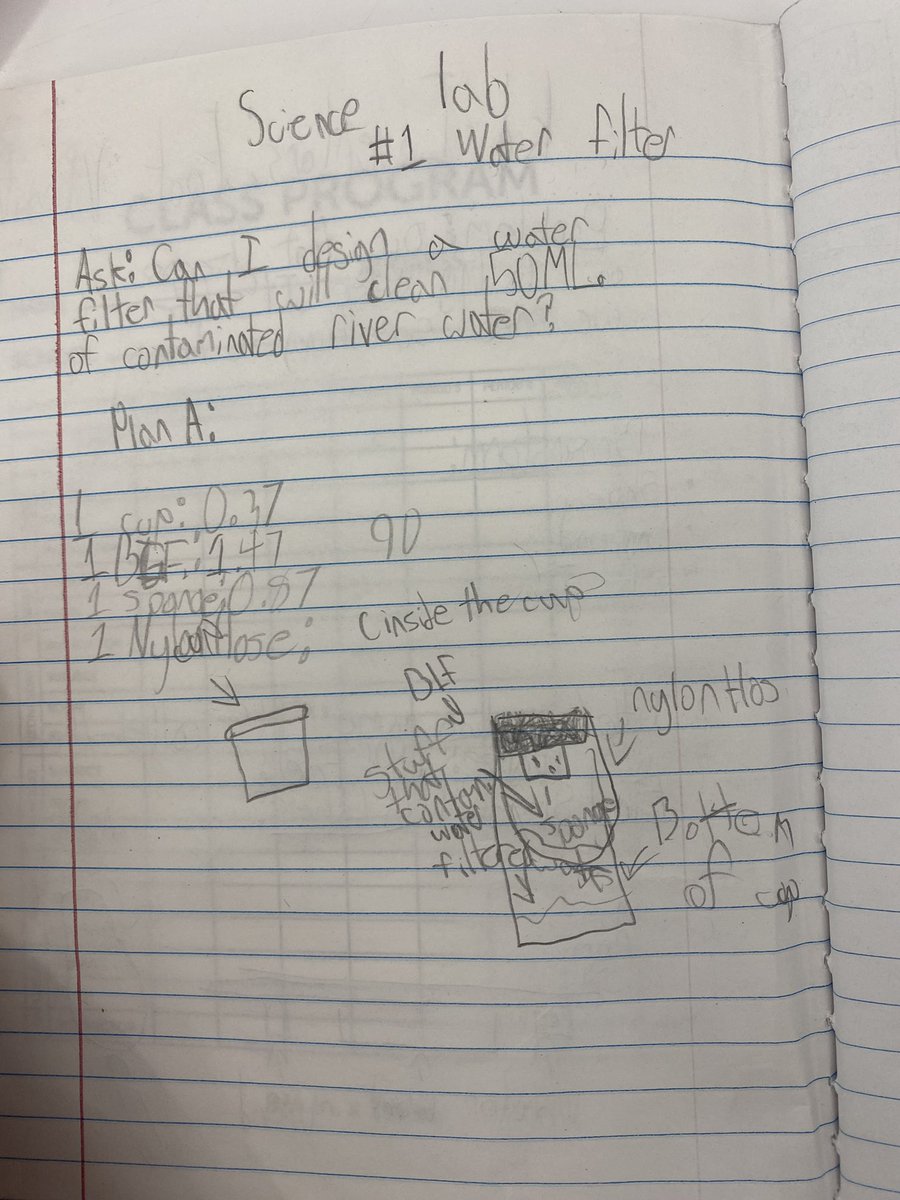 Science lab
#1 Water filter
Ask: Can I design a water
filter that will clean 50ML.
of contaminated river water?
Plan A:
1 cup: 0.37
1 1.47
90
1 sponge: 0.87
1 Nylon Hose:
(inside the cup)
nylon Hos
Stuff
that
contam
water
filtered
Sponge
Bottom
of cup
CLASS PROGRAM